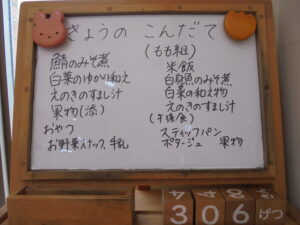 きょうの こんだて
鯖のみそ煮
白菜のゆかり和え
えのきのすまし汁
果物(添)
おやつ
お野菜スナック、牛乳
(もも組)
米飯
白身魚のみそ煮
白菜の和え物
えのきのすまし汁
(午後食)
スティックパン
ポタージュ 果物
3 0 6 げつ